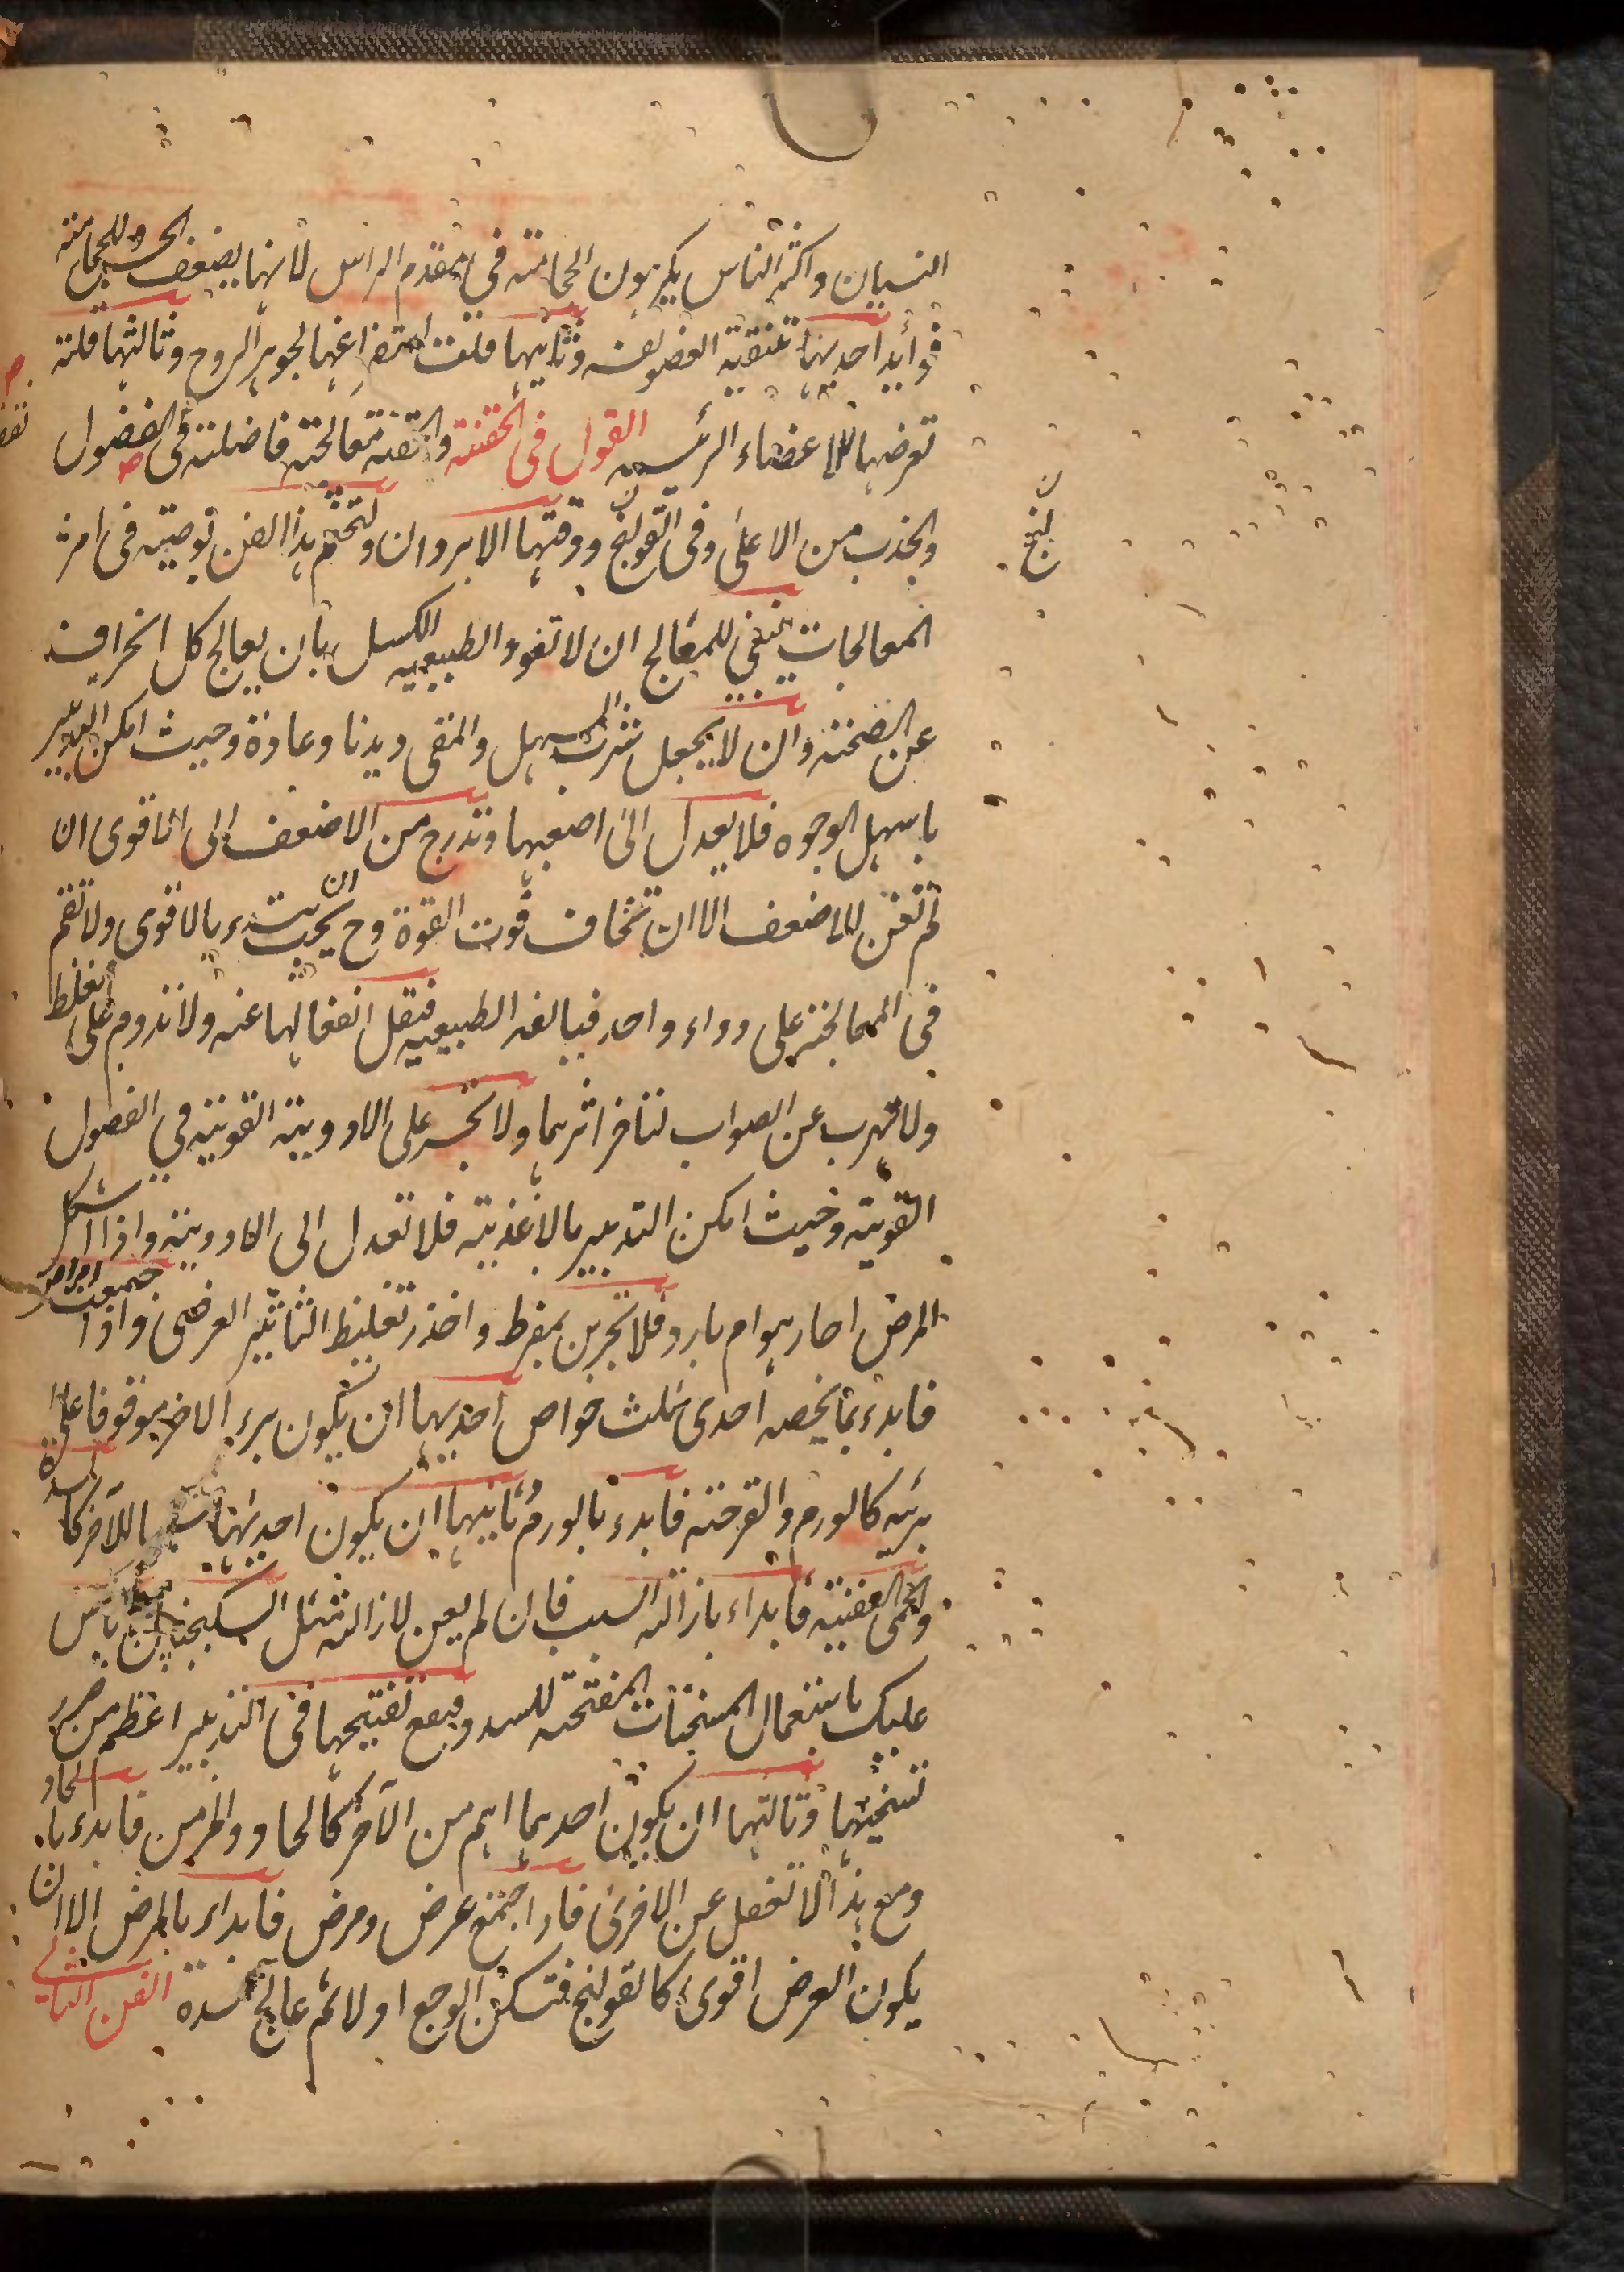 النسيان واكثر الناس يكرهون الحجامته في مقدم الراس لانها يضعف الحس وللحجامته
فوائد احديهما تنقية العضو نفسه وثانيها قلت استفراغها لجوهر الروح وثالثها قلته
تعرضها للاعضاء الرئيسه القول فى الحقنته والحقنه معالجته فاضلته فى الفضول
والجذب من الاعلى وفى القولنج ووقتها الابردان ولنختم هذا الفن بوصيته فى امر
المعالجات ينبغى للمعالج ان لا تعود الطبيعيه الكسل بان يعالج كل انحراف
عن الصحته وان لا يجعل شرب المسهل والمنقى ديدنا وعادة وحيث امكن التدبير
باسهل الوجوه فلا يعدل الى اصعبها وتدرج من الاضعف الى الاقوى ان
لم تغن الاضعف الا ان تخاف فوت القوة وح يجب ان يبتدء بالاقوى ولا تقم
فى المعالجته على دواء واحد فيالفه الطبيعيه فتقل انفعالها عنه ولا تدوم على الغلط
ولا تهرب عن الصواب لتاخر اثرهما ولا تجسر على الادويته القويته في الفصول
القويته وحيث امكن التدبير بالاغذيته فلا تعدل الى الادويته واذا اشكل
المرض احار هو ام بارد فلا تجربن بمفرط واحذر تغليظ التاثير العرضى واذا اجتمعت امراض
فابدء بما يخصه احدى ثلث خواص احديهما ان يكون برء الاخر موقوفا على
برئه كالورم والقرحته فابدء بالورم ثانيها ان يكون احديهما سببا للآخر كالسدة
والحمى العفنيته فابداء بازالته السبب فان لم يعن لازالته مثل السكنجبين فلا باس
عليك باستعمال المسخنات المفتحته للسدد ونفع تفتيحها فى التدبير اعظم من ضرر
تسخينها وثالثها ان يكون احدهما اهم من الآخر كالحاد والمزمن فابدء بالحاد
ومع هذا لا تغفل عن الاخرى فاذا اجتمع عرض ومرض فابداء بالمرض الا ان
يكون العرض اقوى كالقولنج فتسكن الوجع اولا ثم عالج السدة الفن الثانى